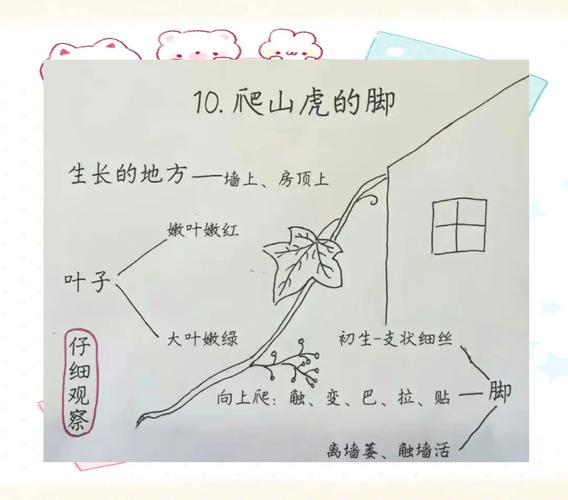 10.爬山虎的脚
生长的地方—墙上、房顶上
嫩叶嫩红
叶子
大叶嫩绿
仔细观察
初生-支状细丝
向上爬：触、变、巴、拉、贴
脚
离墙萎、触墙活